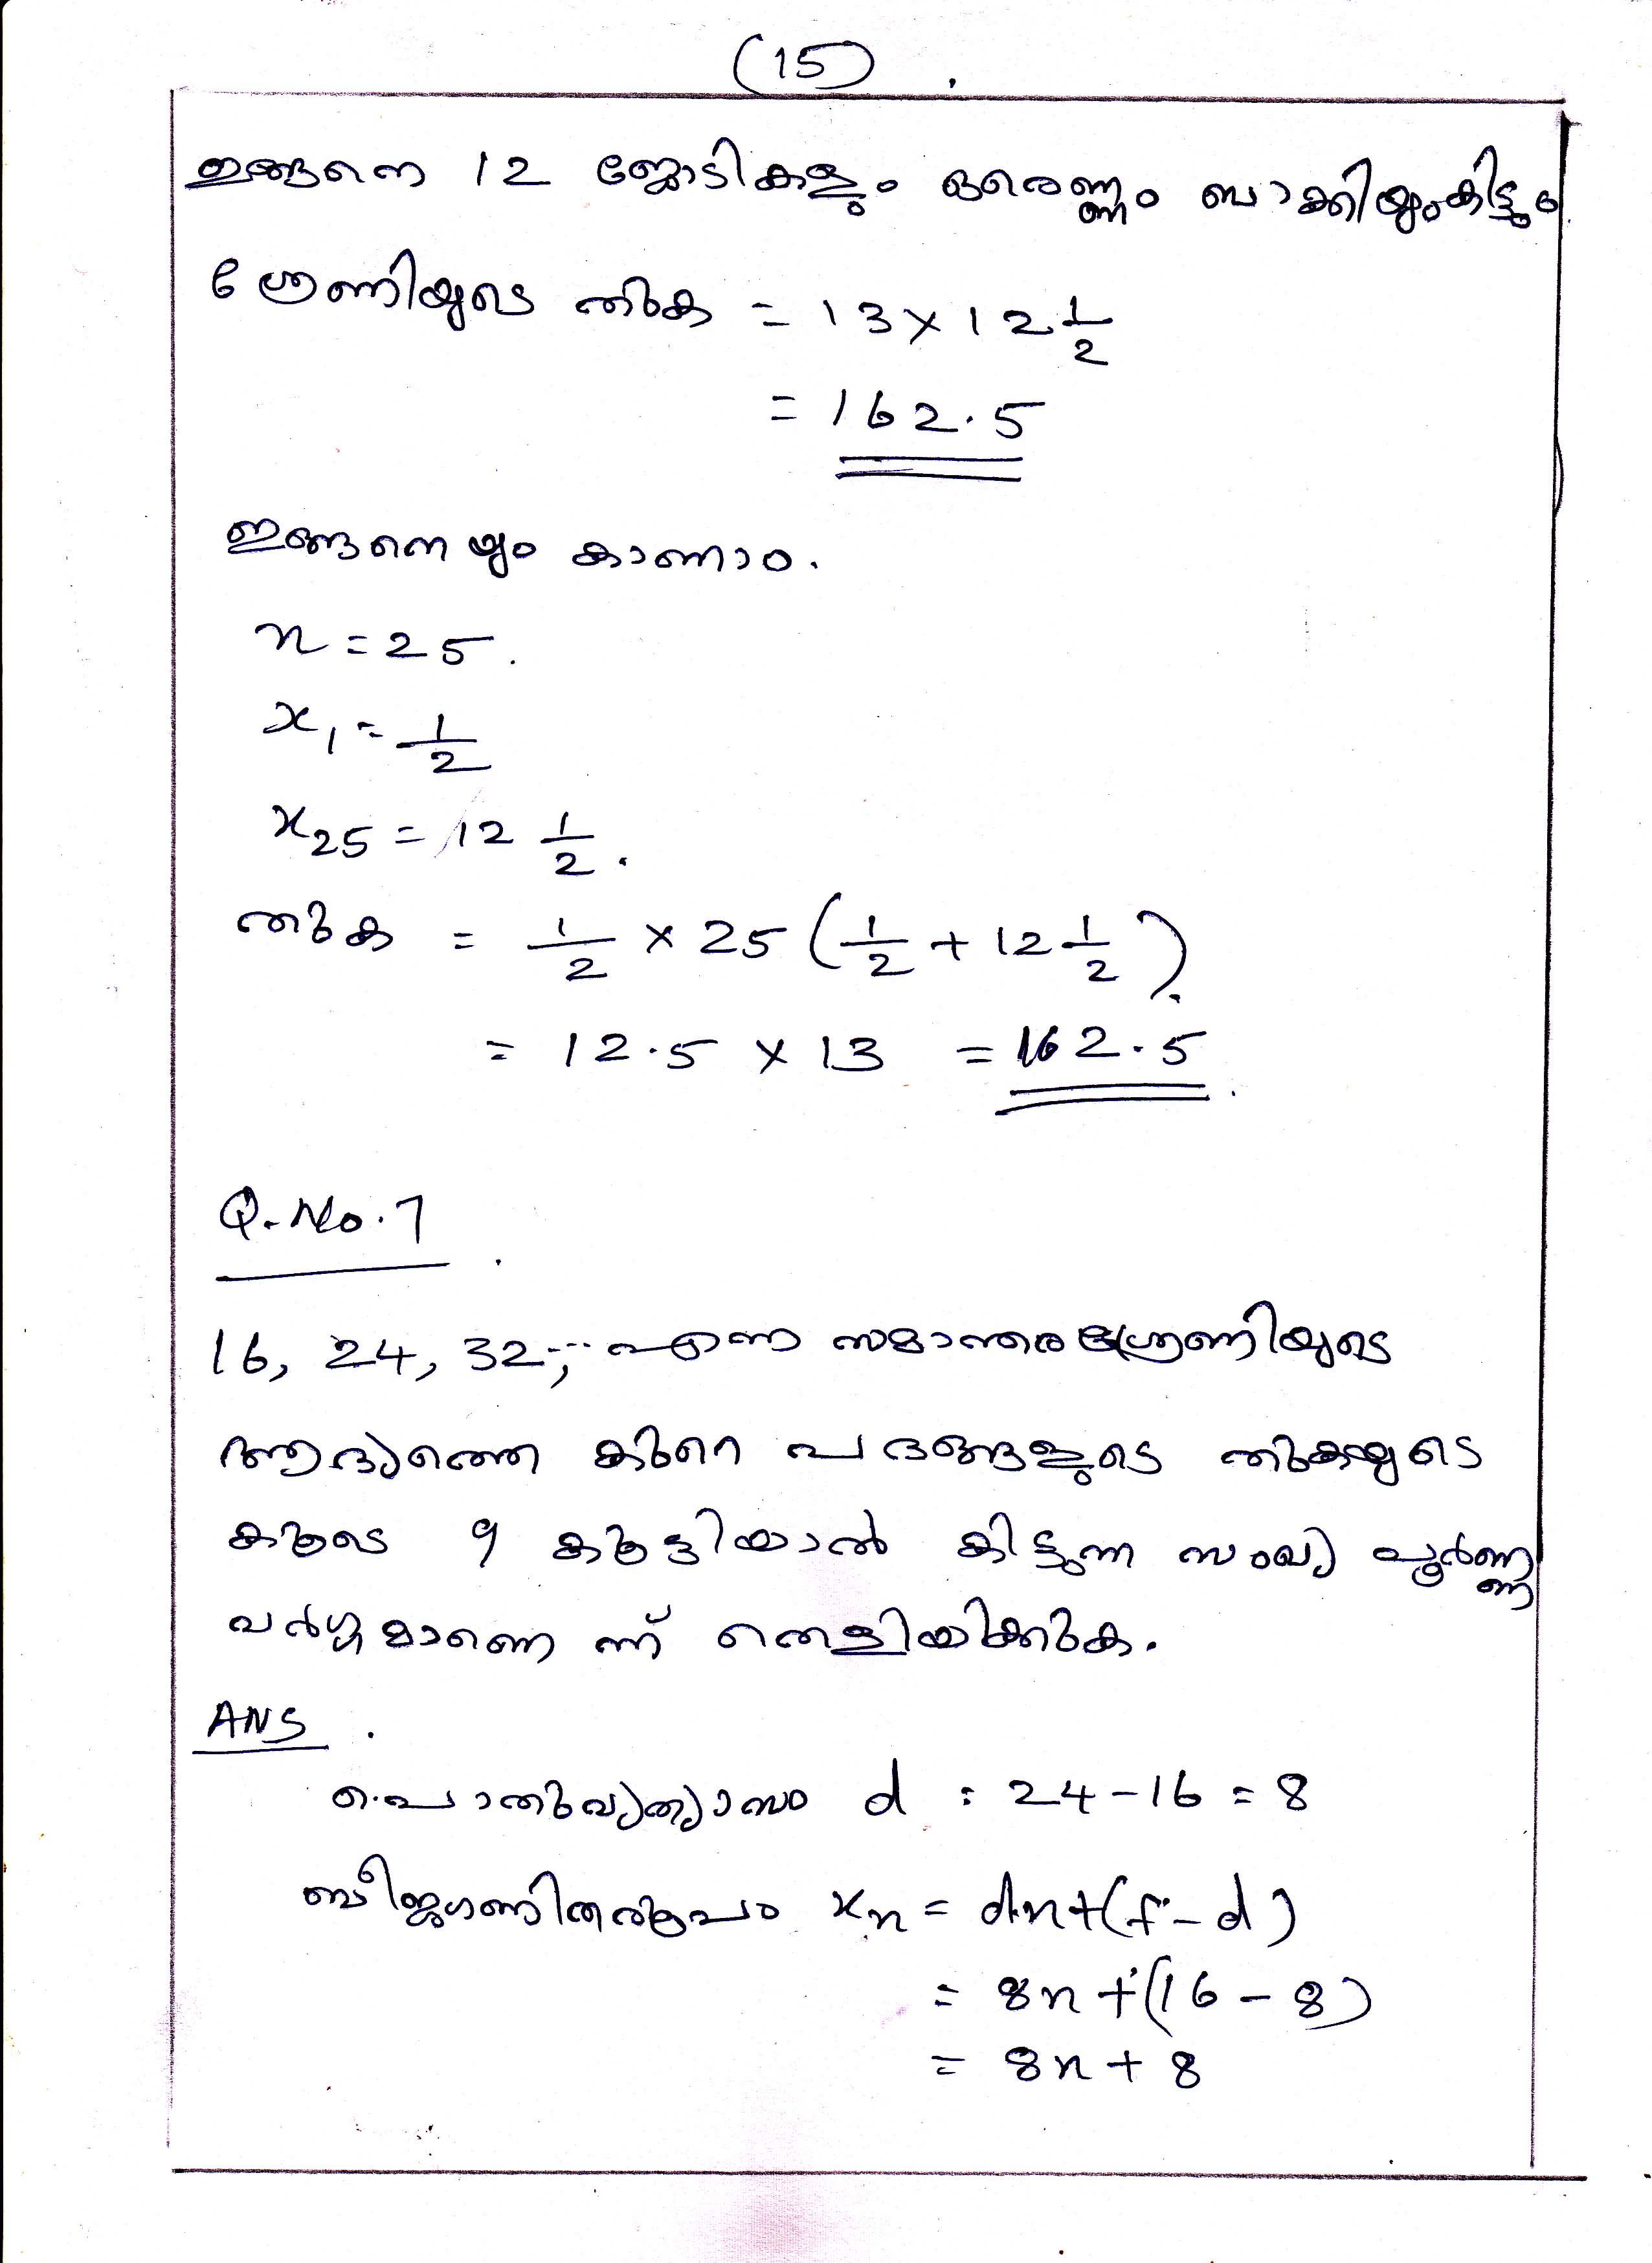 (15)
ഇങ്ങനെ 12 ജോടികളും ഒരെണ്ണം ബാക്കിയുംകിട്ടും
ശ്രേണിയുടെ തുക = 13 × 12 1/2
= 162.5
ഇങ്ങനെയും കാണാം.
n = 25.
x₁ = 1/2
x₂₅ = 12 1/2.
തുക = 1/2 × 25 (1/2 + 12 1/2).
= 12.5 × 13 = 162.5
Q. No. 7
16, 24, 32, ... എന്ന സമാന്തരശ്രേണിയുടെ
ആദ്യത്തെ കുറെ പദങ്ങളുടെ തുകയുടെ
കൂടെ 9 കൂട്ടിയാൽ കിട്ടുന്ന സംഖ്യ പൂർണ്ണ
വർഗ്ഗമാണെന്ന് തെളിയിക്കുക.
ANS.
പൊതുവ്യത്യാസം d = 24 - 16 = 8
ബീജഗണിതരൂപം xₙ = dn + (f - d)
= 8n + (16 - 8)
= 8n + 8